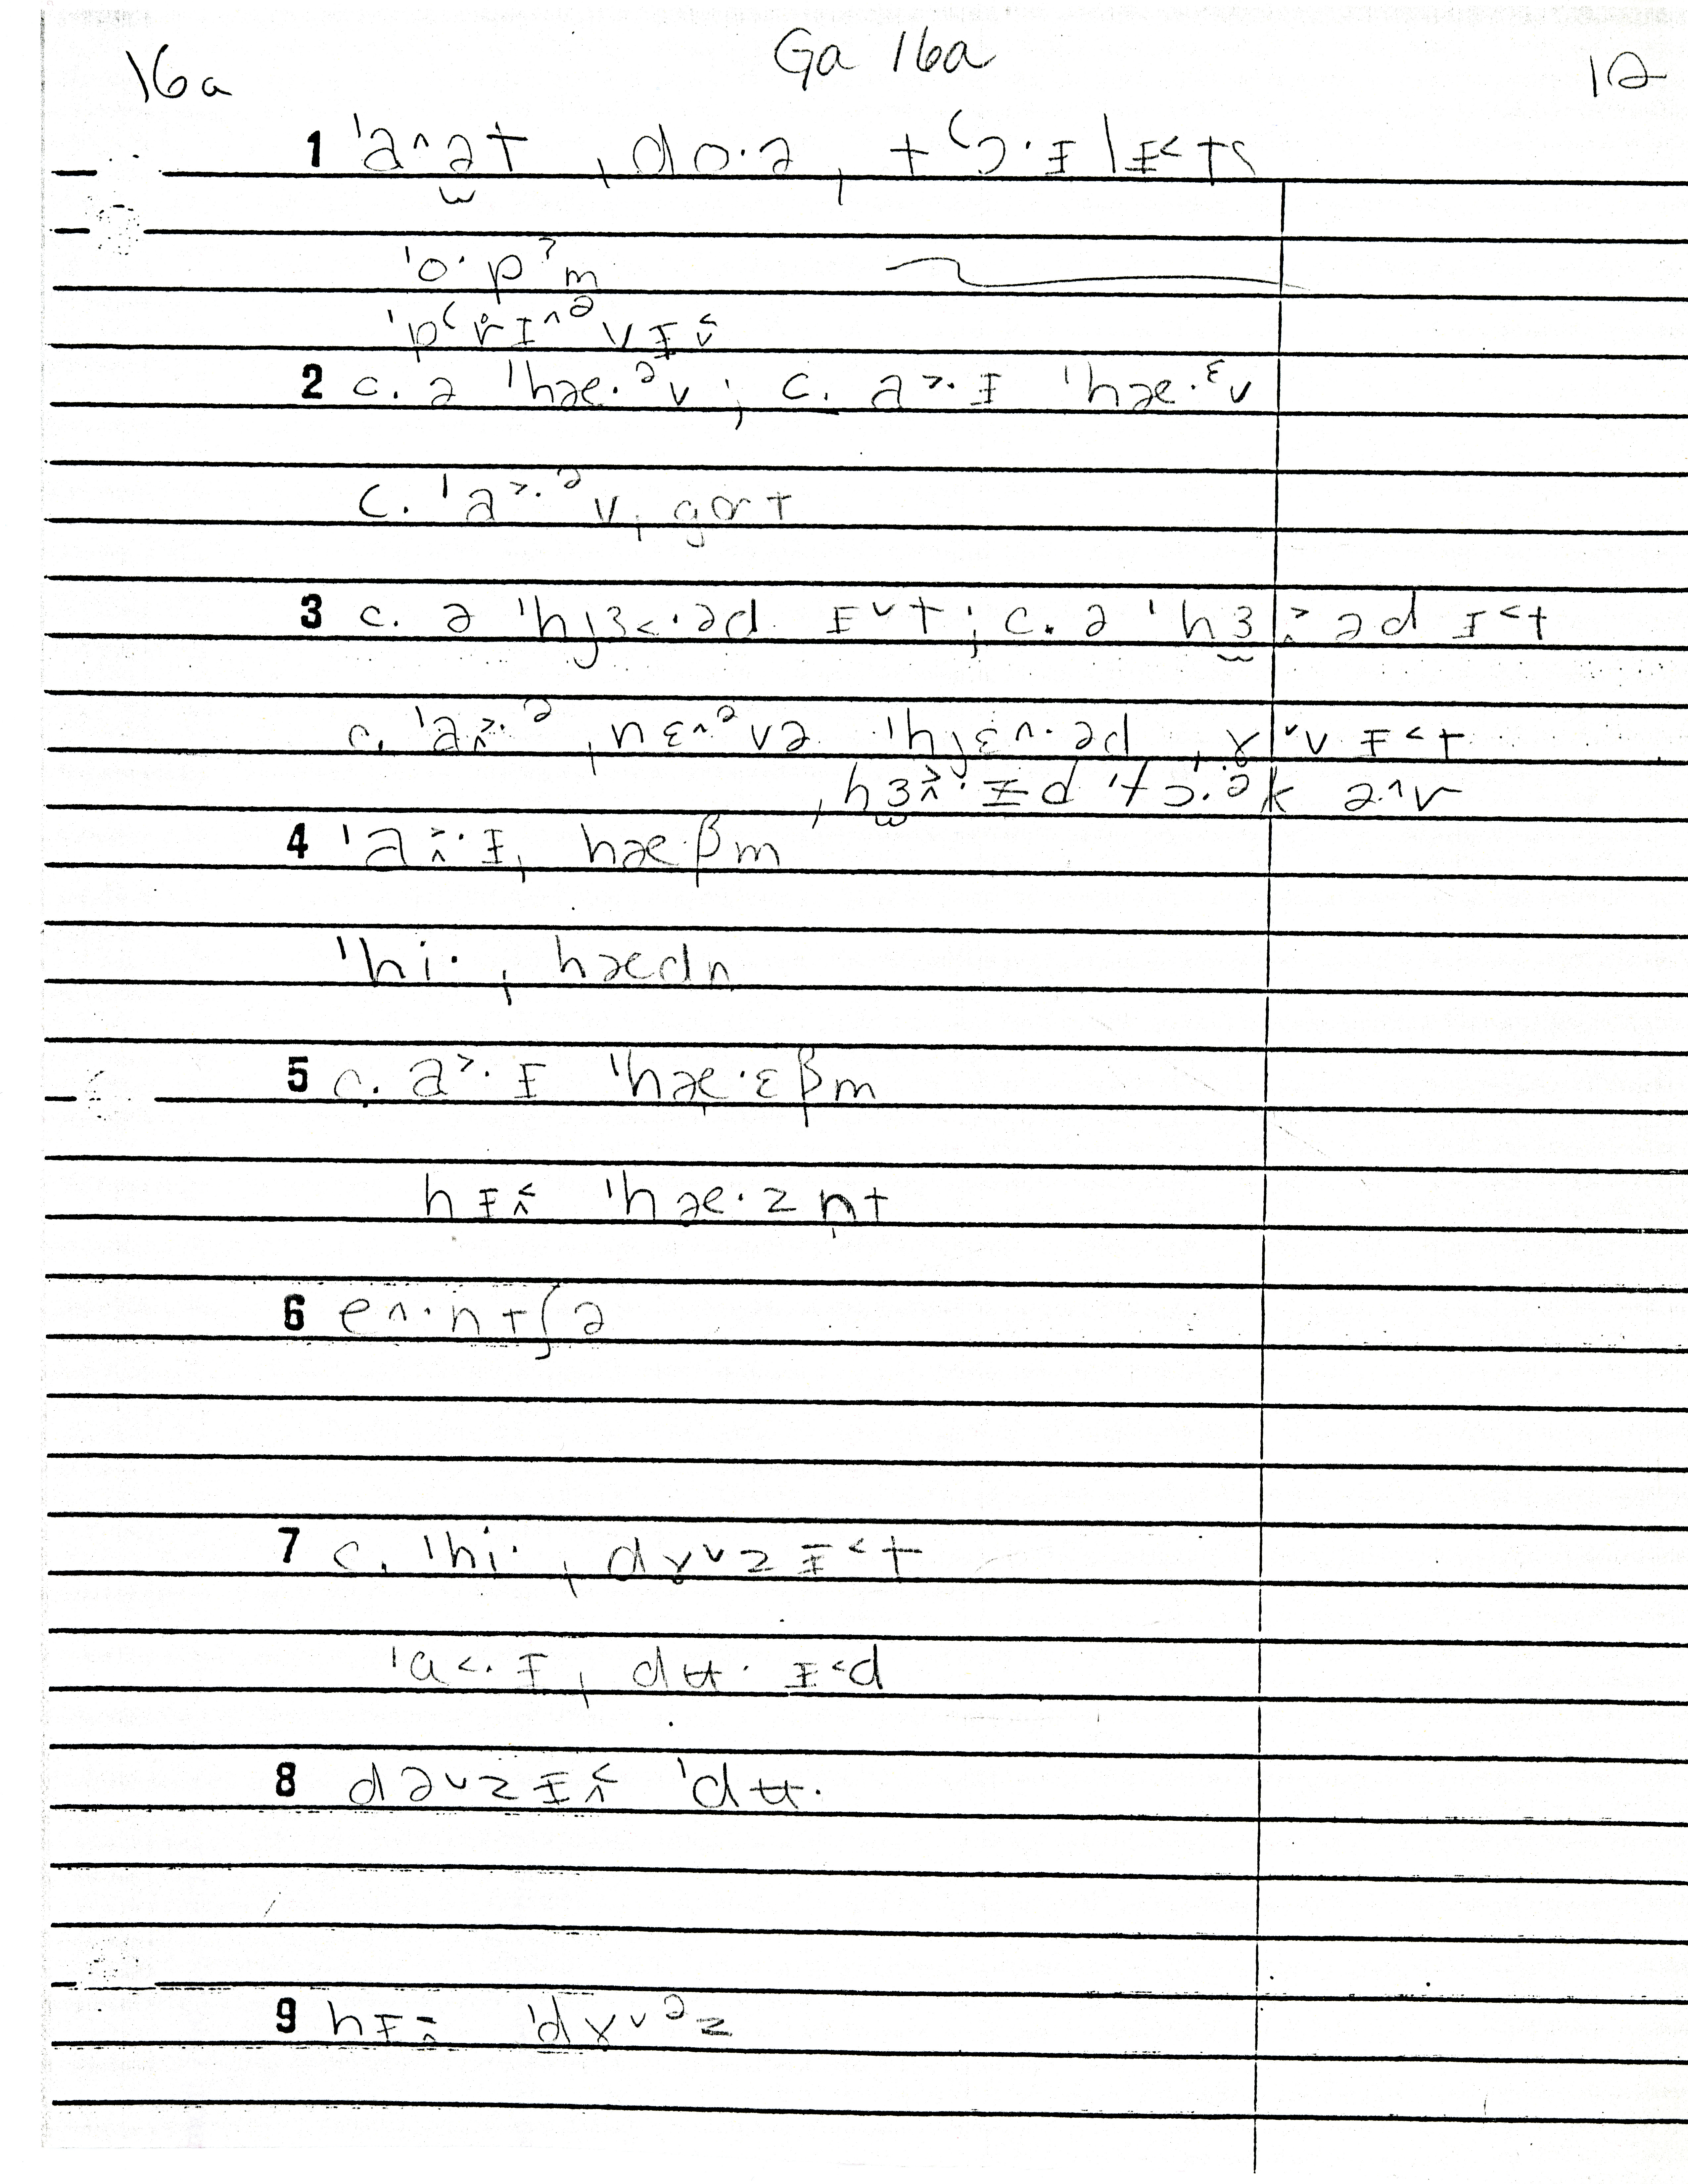 16a Ga 16a 12
1 ˈa^ət ˌdo·ə, tʕɔ·ɪlɪ˂ts
ˈo·pˀm
ˈpʕr̥ɪ^ᵊvɪ
2 c. ə ˈhæ·ᵊv; c. a˃·ɪ ˈhæ·ᵋv
c. ˈa˃·ᵊvˌgɑt
3 c. ə ˈhjɜ˂·əd ɪ˅t; c. ə ˈhɜ əd ɪ˂t
c. ˈa˃·ᵊ ˌnɛ^ᵊvə ˈhjɛ^·əd ˌɤ˅v ɪ˂t
4 ˈa·ɪˌ hæ·βm
ˈhi· ˌhædn
5 c. a˃·ɪ ˈhæ·ɛβm
hɪ ˈhæ·zn̩t
6 e^·ntʃə
7 c. ˈhi· ˌdɤ˅zɪ˂t
ˈa˂·ɪˌ dʉ·ɪ˂d
8 də˅zɪ ˈdʉ·
9 hɪ ˈdɤ˅ᵊz